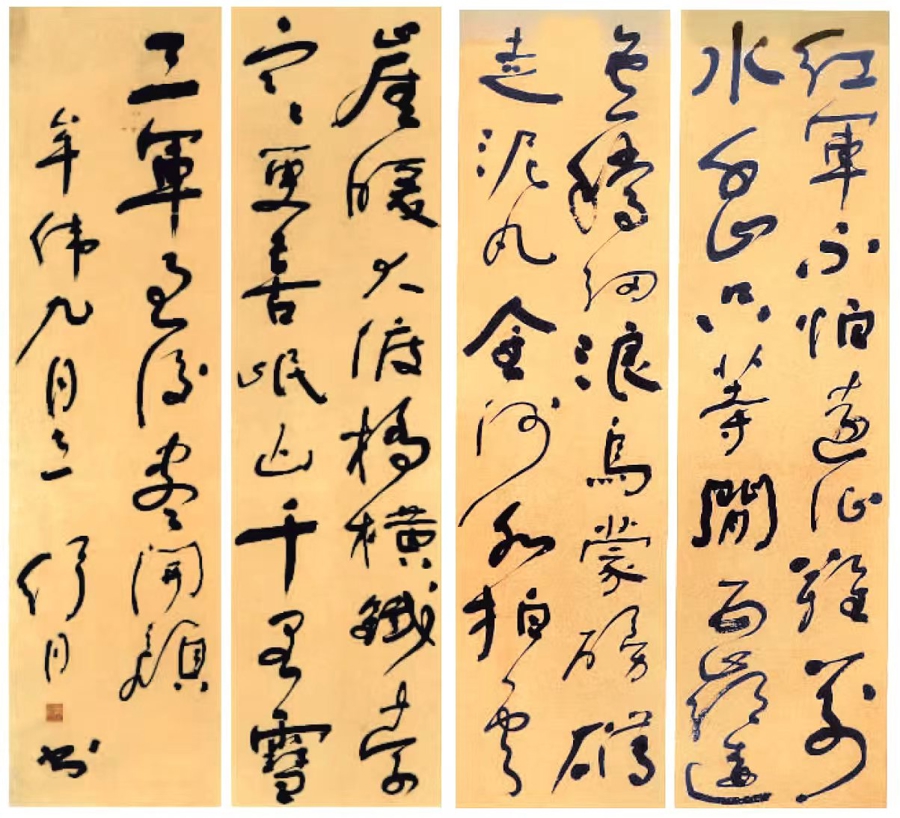 紅軍不怕遠征難萬
水千山只等閒五嶺逶
迤騰細浪烏蒙磅礴
走泥丸金沙水拍雲
崖暖大渡橋橫鐵索
寒更喜岷山千里雪
三軍過後盡開顏
九月 书